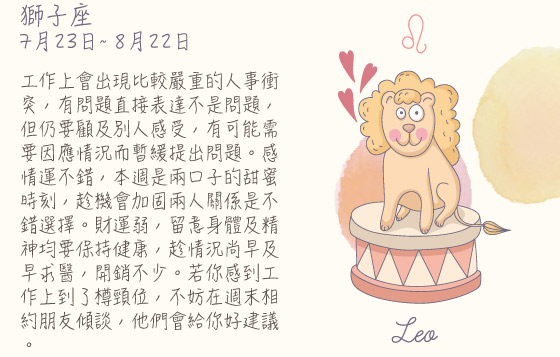 獅子座
7月23日~8月22日
工作上會出現比較嚴重的人事衝
突，有問題直接表達不是問題，
但仍要顧及別人感受，有可能需
要因應情況而暫緩提出問題。感
情運不錯，本週是兩口子的甜蜜
時刻，趁機會加固兩人關係是不
錯選擇。財運弱，留意身體及精
神均要保持健康，趁情況尚早及
早求醫，開銷不少。若你感到工
作上到了樽頸位，不妨在週末相
約朋友傾談，他們會給你好建議
。
♌
Leo